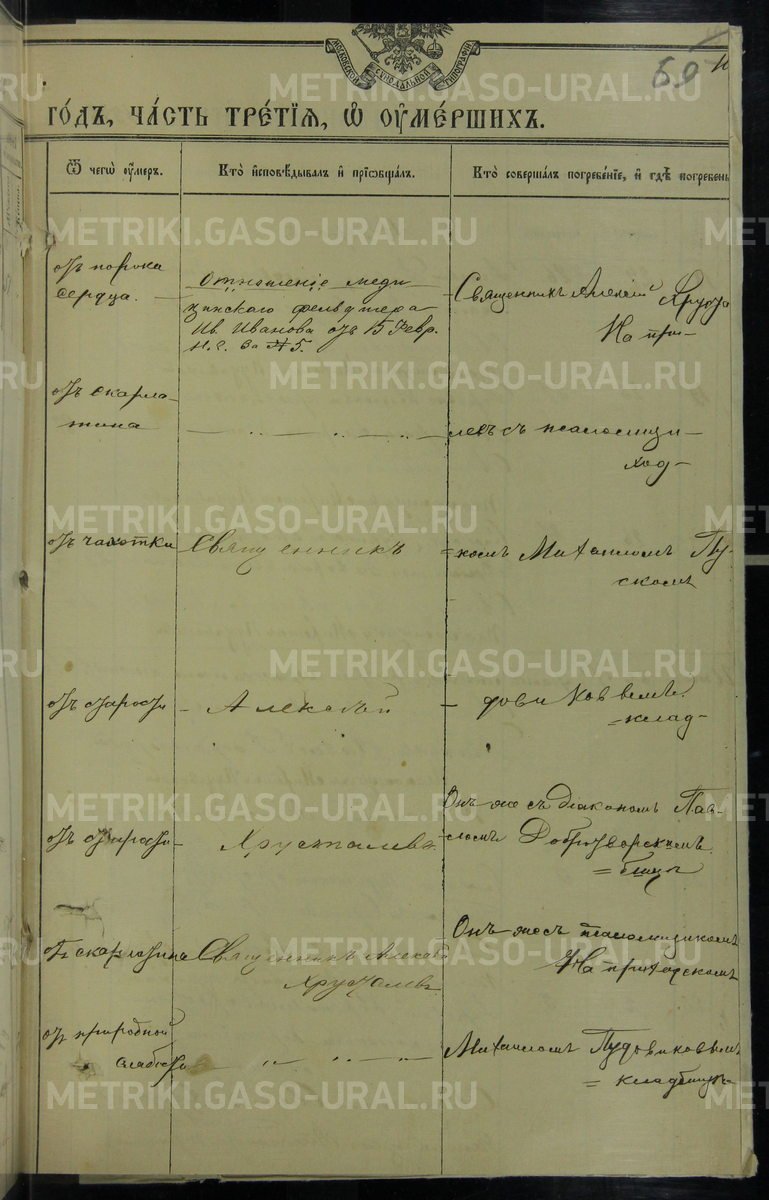 МОСКОВСКОЙ СѴНОДАЛЬНОЙ ТИПОГРАФІИ
69
METRIKI.GASO-URAL.RU
го́дъ, ча́сть тре́тїѧ, ѡ҆ оу҆ме́ршихъ.
Ѿ чегѡ̀ оу҆́меръ.
Кто̀ и҆сповѣ́дывалъ и҆ прїѡбща́лъ.
Кто̀ соверша́лъ погребе́нїе, и҆ гдѣ̀ погребены̀
отъ порока
сердца.
Отношеніе меди
цинскаго фельдшера
Ив. Иванова отъ 15 Февр.
н. г. за № 5.
Священникъ Алексій Хруста
На при-
отъ скарла-
тина
— „ — „ — „ —
левъ съ псаломщи-
ход-
отъ чахотки
Священникъ
=комъ Михаиломъ Пу-
скомъ
отъ старости
Алексѣй
довиковымъ.
=клад-
отъ старости
Хрусталевъ
Онъ же съ діакономъ Пав-
ломъ Добротворскимъ
=бищѣ
отъ скарлатины
Священникъ Алексѣй
Хрусталевъ
Онъ же съ псаломщикомъ
На приходскомъ
отъ природной
слабости
— „ — „ — „ —
Михаиломъ Пудовиковымъ
= кладбищѣ